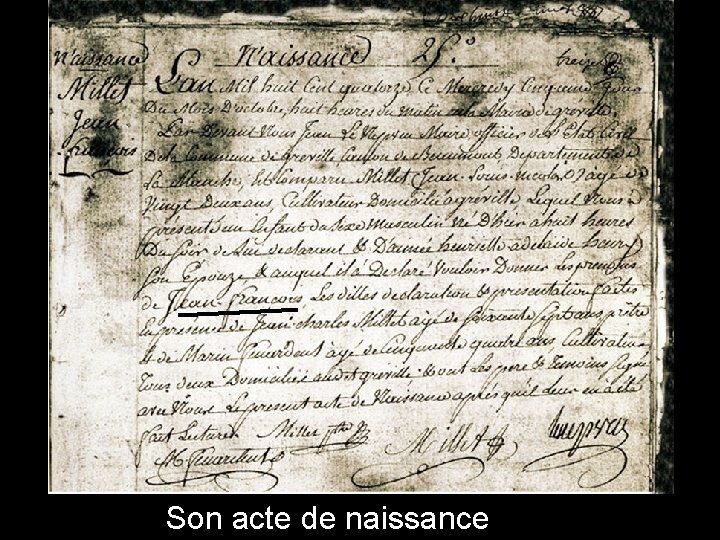 Naissance
Millet
Jean
francois
Naissance
L'an Mil huit Cent quatorze Ce Mercredy Cinquieme Jour
Du Mois D'octobre, huit heures du matin a la Mairie de greville.
Par Devant Nous Jean Le Maire officier de l'Etat Civil
De la Commune de greville Canton de Beaumont, Departement de
La Manche, Est Comparu Millet Jean Louis Nicolas agé de
Vingt Deux ans, Cultivateur Domicilié a gréville Lequel Nous a
présenté un Enfant du Sexe Masculin Né D'hier a huit heures
Du Soir de Lui declarant & D'aimée henriette adelaide henry
Son Epouze & auquel il à Declaré Vouloir Donner Les prenoms
de Jean François, Les dittes declaration & presentation faites
En presence de Jean charles Millet agé de Soixante Sept ans prêtre
et de Marin agé de Cinquante quatre ans Cultivateur
Tous deux Domiciliés audit greville & ont Les pere & Temoins Signé
avec Nous Le present acte de Naissance après qu'il Leur en a été
fait Lecture Millet
Millet
Son acte de naissance